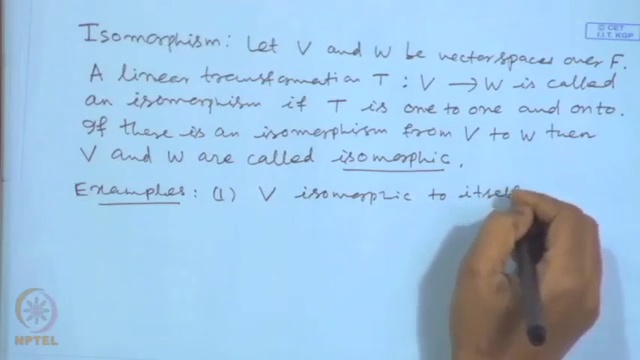 © CET
I.I.T. KGP
Isomorphism: Let V and W be vector spaces over F.
A linear transformation T : V → W is called
an isomorphism if T is one to one and onto.
If there is an isomorphism from V to W then
V and W are called isomorphic.
Examples: (1) V isomorphic to itself
NPTEL